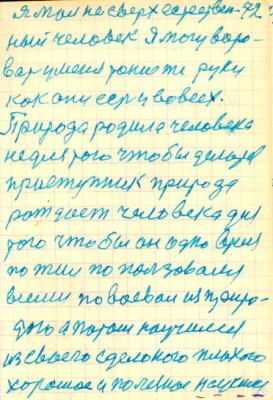 Я мол не сверхестрествен- 72
ный человек Я могу воро-
вар у меня тоже ти руки
как они есть у во всех.
Природа родила человека
не для того чтобы делатся
приступник природа
рождает человека для
того чтобы он одно время
по жил по ползовался
всеми по воевал из приро-
дого а потом научился
из своего сделоного плохого
хорошое и полезное